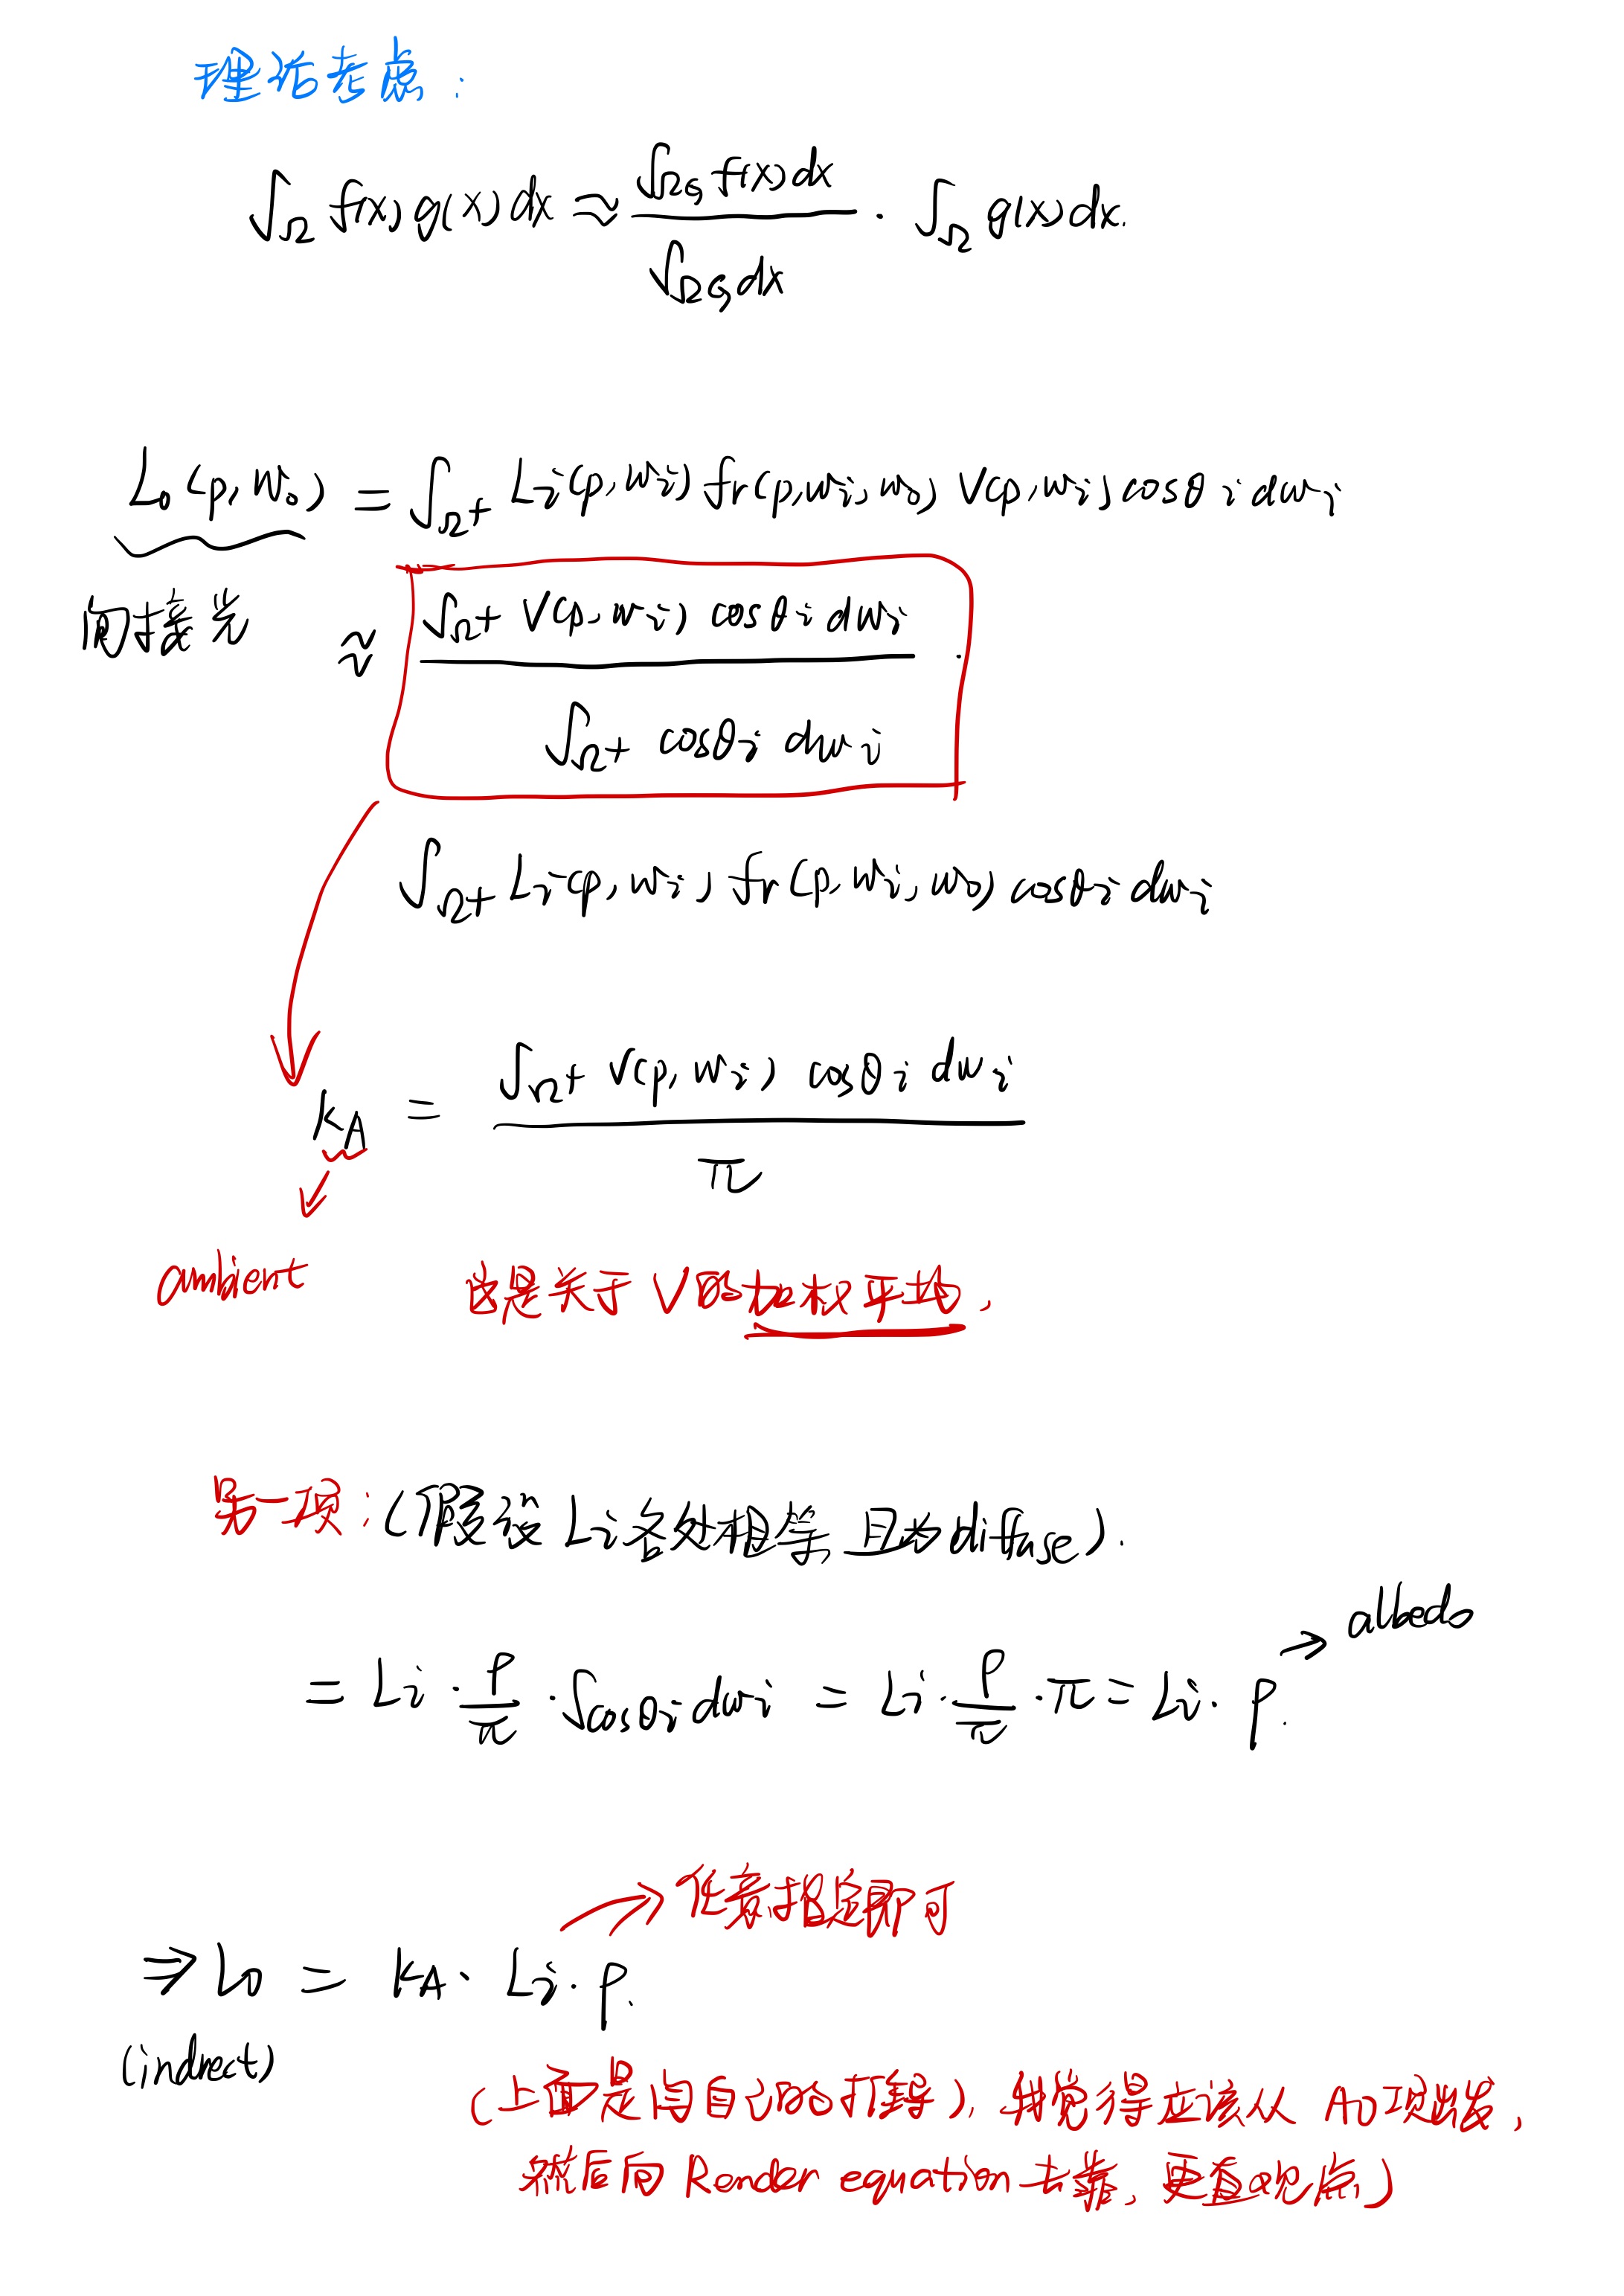 理论考点:
∫_Ω f(x) g(x) dx ≈ ∫_{Ω_G} f(x) dx / ∫_{Ω_G} dx · ∫_Ω g(x) dx.
L_o(p, w_o) = ∫_{Ω+} L_i(p, w_i) f_r(p, w_i, w_o) V(p, w_i) cosθ_i dw_i
间接光
≈ ∫_{Ω+} V(p, w_i) cosθ_i dw_i / ∫_{Ω+} cosθ_i dw_i ·
∫_{Ω+} L_i(p, w_i) f_r(p, w_i, w_o) cosθ_i dw_i
k_A = ∫_{Ω+} V(p, w_i) cosθ_i dw_i / π
ambient 这是关于V的加权平均,
另一项:(假设 L_i 各处相等 且为 diffuse).
= L_i · ρ/π · ∫cosθ_i dw_i = L_i · ρ/π · π = L_i · ρ.
→ albedo
→ 任意指定即可
⇒ L_o = k_A · L_i · ρ.
(indirect)
(上面是 自己的推导), 我觉得应该从 AO项出发,
然后向 Render equation 去靠, 更直观点)